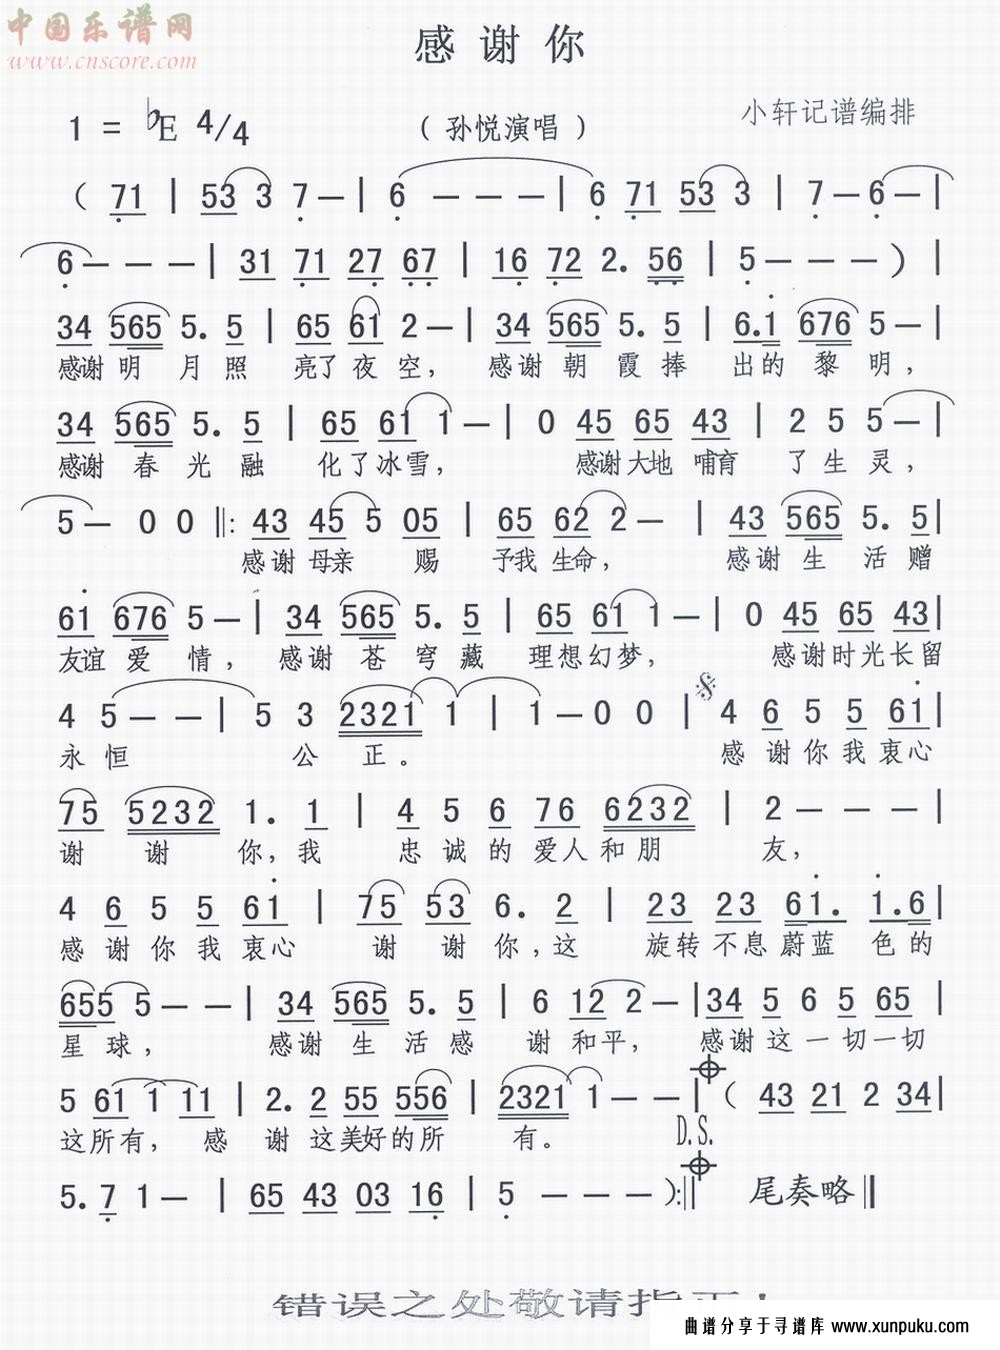 中国乐谱网
www.cnscore.com
感谢你
1 = ♭E 4/4
（孙悦演唱）
小轩记谱编排
（ 71 | 53 3 7 — | 6 — — — | 6 71 53 3 | 7 — 6 — |
6 — — — | 31 71 27 67 | 16 72 2. 56 | 5 — — — ） |
34 565 5. 5 | 65 61 2 — | 34 565 5. 5 | 6.1 676 5 — |
感谢明月照 亮了夜空， 感谢朝霞捧 出的黎明，
34 565 5. 5 | 65 61 1 — | 0 45 65 43 | 2 5 5 — |
感谢春光融 化了冰雪， 感谢大地哺育 了生灵，
5 — 0 0 ‖: 43 45 5 05 | 65 62 2 — | 43 565 5. 5 |
感谢母亲赐 予我生命， 感谢生活赠
61 676 5 — | 34 565 5. 5 | 65 61 1 — | 0 45 65 43 |
友谊爱情， 感谢苍穹藏 理想幻梦， 感谢时光长留
4 5 — — | 5 3 2321 1 | 1 — 0 0 | 4 6 5 5 61 |
永恒 公正。 感谢你我衷心
75 5232 1. 1 | 4 5 6 76 6232 | 2 — — — |
谢谢你，我 忠诚的爱人和朋 友，
4 6 5 5 61 | 75 53 6. 2 | 23 23 61. 1.6 |
感谢你我衷心 谢谢你，这 旋转不息蔚蓝色的
655 5 — — | 34 565 5. 5 | 6 12 2 — | 34 5 6 5 65 |
星球， 感谢生活感 谢和平， 感谢这一切一切
5 61 1 11 | 2. 2 55 556 | 2321 1 — — | （ 43 21 2 34 |
这所有，感 谢这美好的所 有。 D.S.
5. 7 1 — | 65 43 03 16 | 5 — — — ）:‖ 尾奏略 ‖
错误之处敬请指正！
曲谱分享于寻谱库 www.xunpuku.com